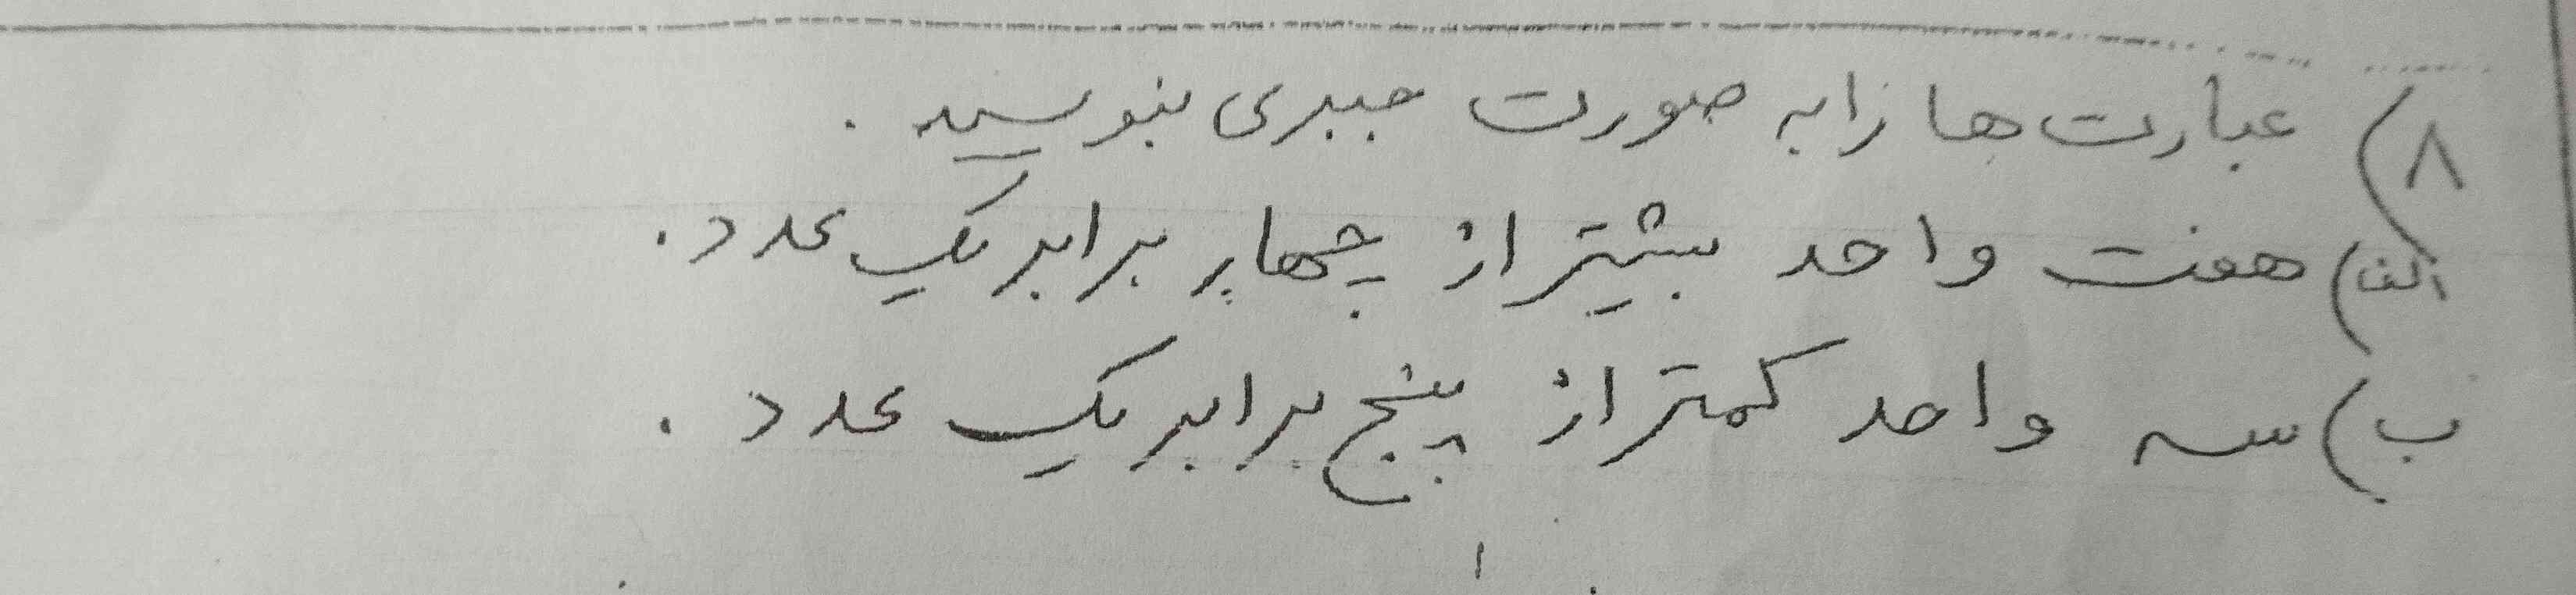 ۸) عبارت‌ها را به صورت جبری بنویسید.
الف) هفت واحد بیشتر از چهار برابر یک عدد.
ب) سه واحد کمتر از پنج برابر یک عدد.